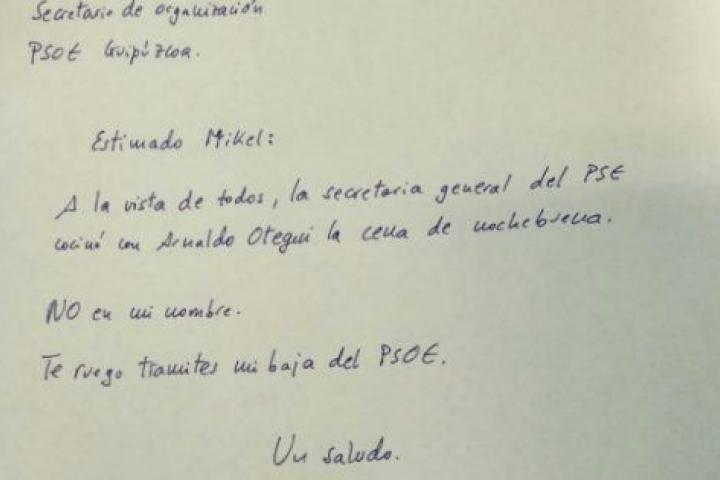 Secretario de organización
PSOE Guipúzcoa.
Estimado Mikel:
A la vista de todos, la secretaria general del PSE
cocinó con Arnaldo Otegui la cena de nochebuena.
NO en mi nombre.
Te ruego tramites mi baja del PSOE.
Un saludo.